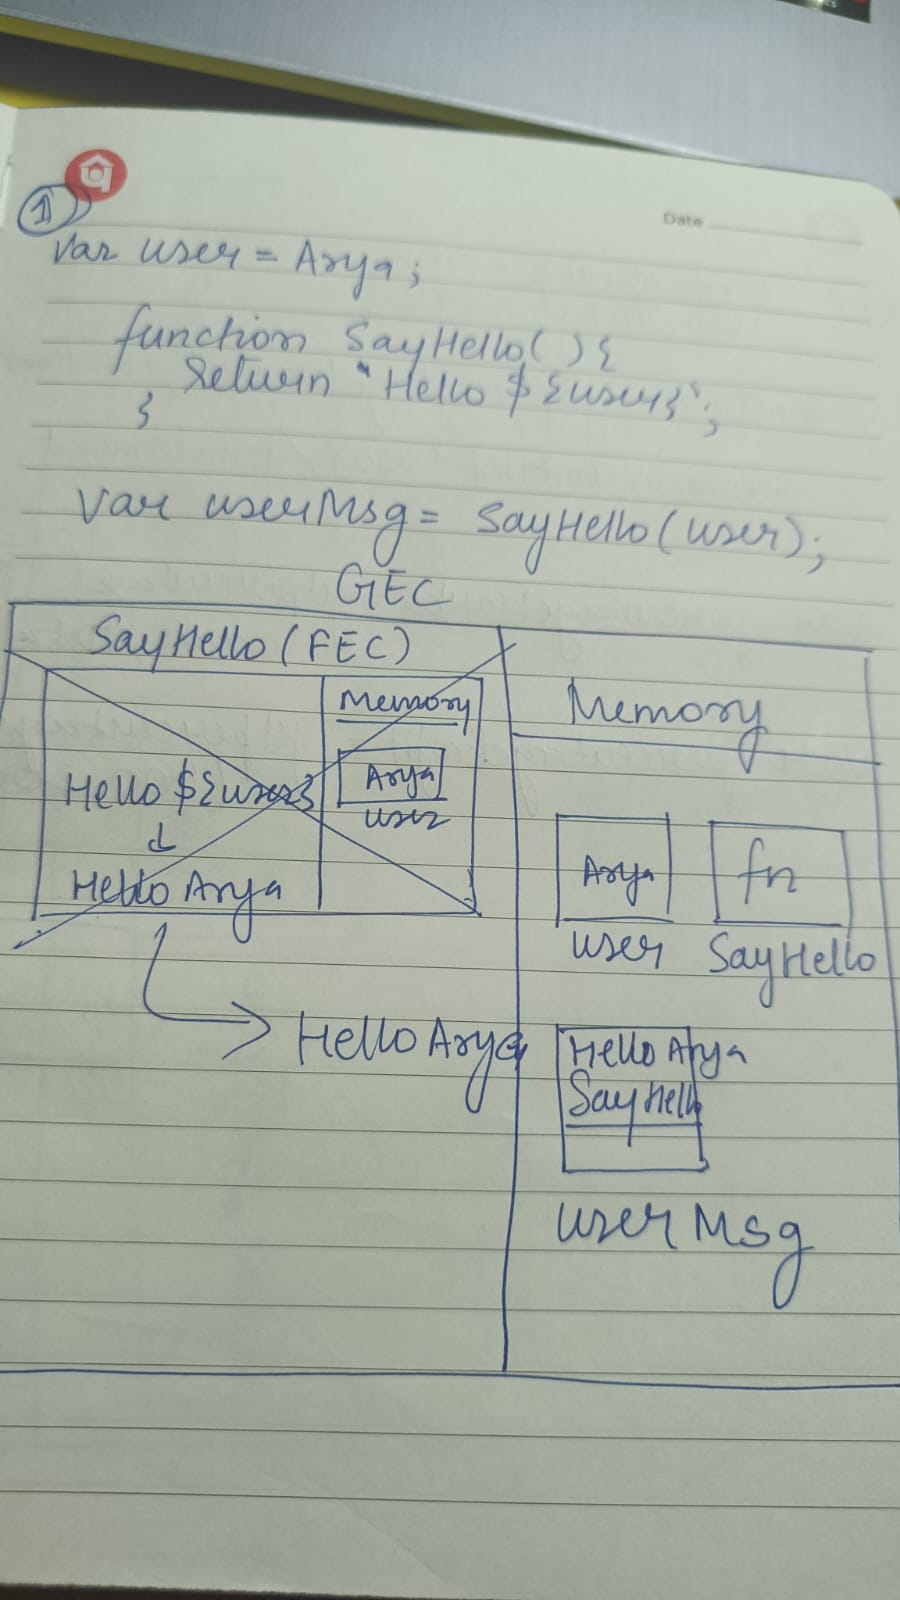 Date
1
var user = Arya;
function SayHello() {
return "Hello ${user}`;
}
var userMsg = SayHello(user);
GEC
SayHello (FEC)
Memory
Memory
Arya
user
Hello ${user}
Hello Arya
Arya
user
fn
SayHello
Hello Arya
Hello Arya
SayHello
userMsg